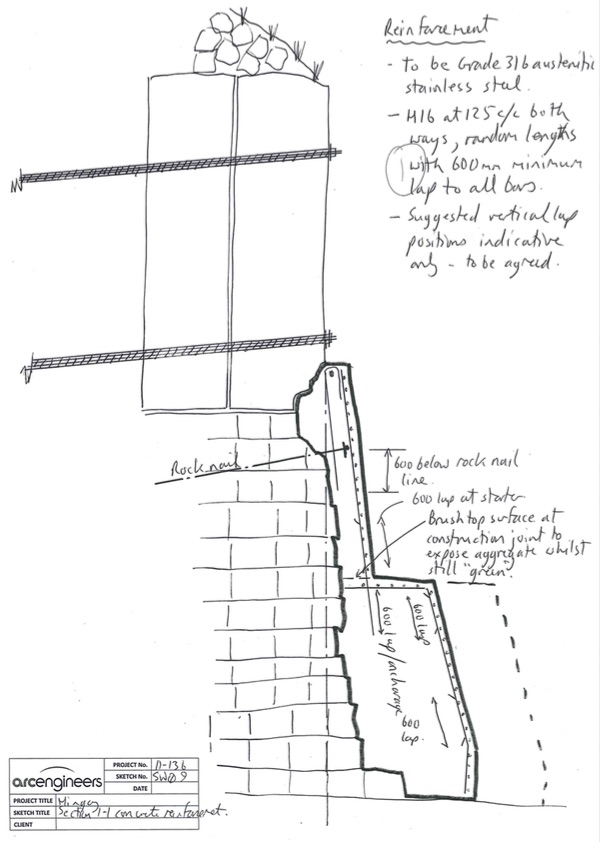 Reinforcement
- To be Grade 316 austenitic
stainless steel.
- H16 at 125 c/c both
ways, random lengths
with 600mm minimum
lap to all bars.
- Suggested vertical lap
positions indicative
only - to be agreed.
Rock nail
600 below rock nail
line.
600 lap at starter
Brush top surface at
construction joint to
expose aggregate whilst
still "green".
600 lap/anchorage
600 lap
600
lap.
arcengineers
PROJECT No. 11-136
SKETCH No. SW09
DATE
PROJECT TITLE Mingay
SKETCH TITLE Section 1-1 concrete reinforcement.
CLIENT